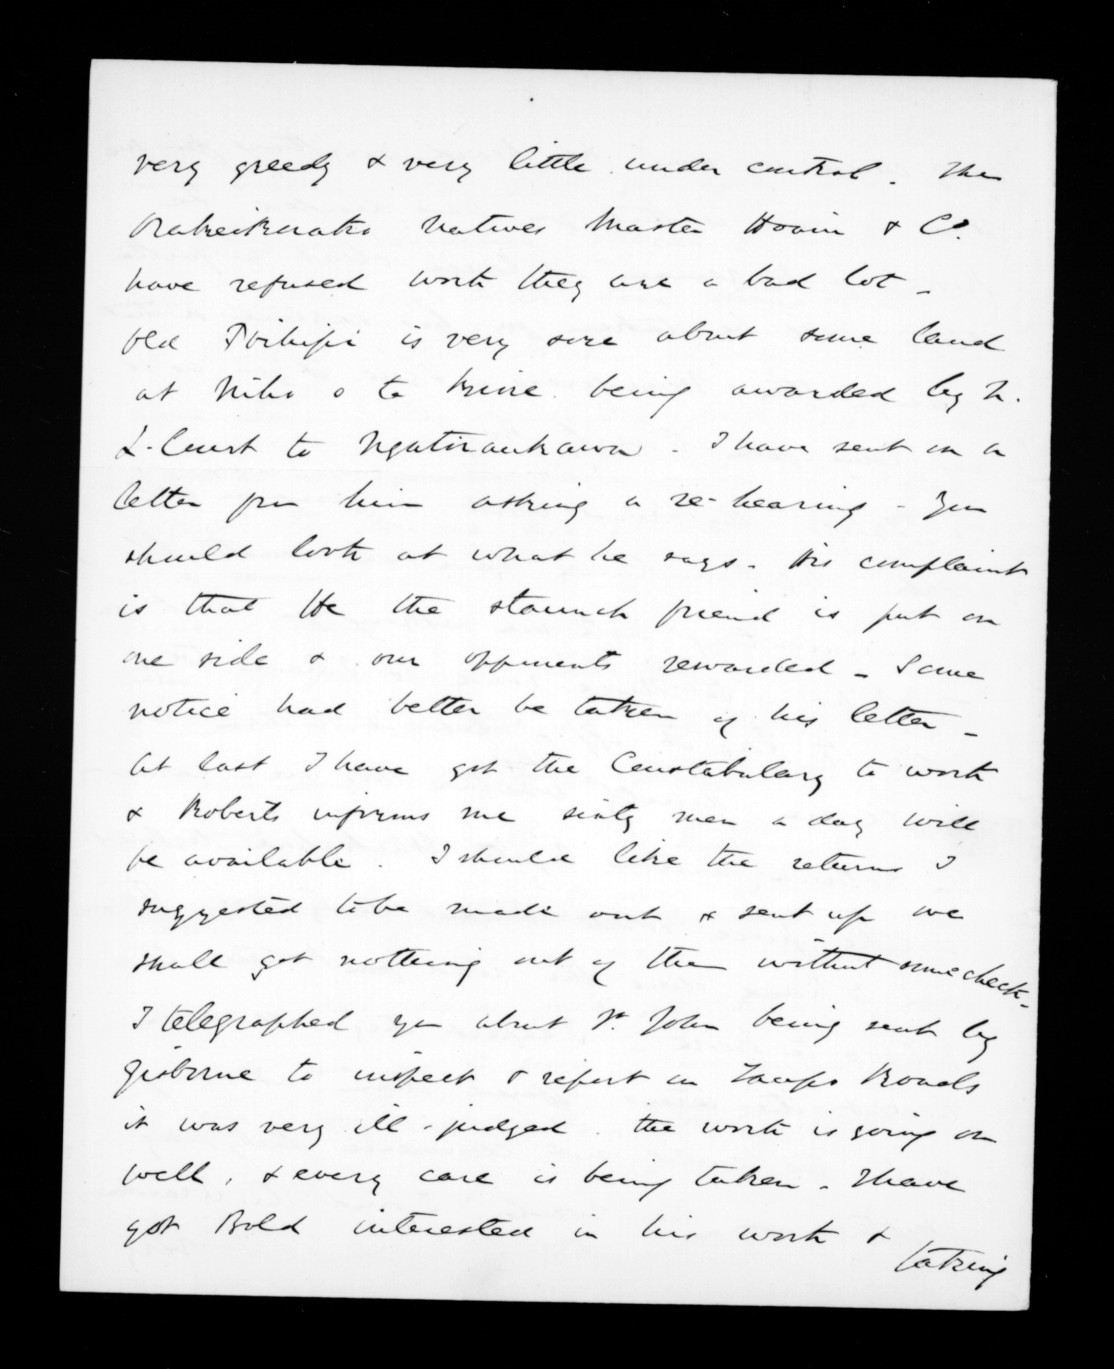 very greedy & very little under control. The
Orakeikorako Natives Master Hoani & Co.
have refused work they are a bad lot -
old Poihipi is very sore about some land
at Niho o te Kiore being awarded by N.
L. Court to Ngatiraukawa - I have sent in a
letter from him asking a re-hearing - You
should look at what he says. His complaint
is that He the staunch friend is put on
one side & our opponents rewarded - Some
notice had better be taken of his letter -
At last I have got the Constabulary to work
& Roberts informs me sixty men a day will
be available. I should like the returns I
suggested to be made out & sent up we
shall get nothing out of them without some check -
I telegraphed you about St. John being sent by
Gisborne to inspect & report on Taupo Roads
it was very ill-judged. the work is going on
well, & every care is being taken. I have
got Bold interested in his work &
taking